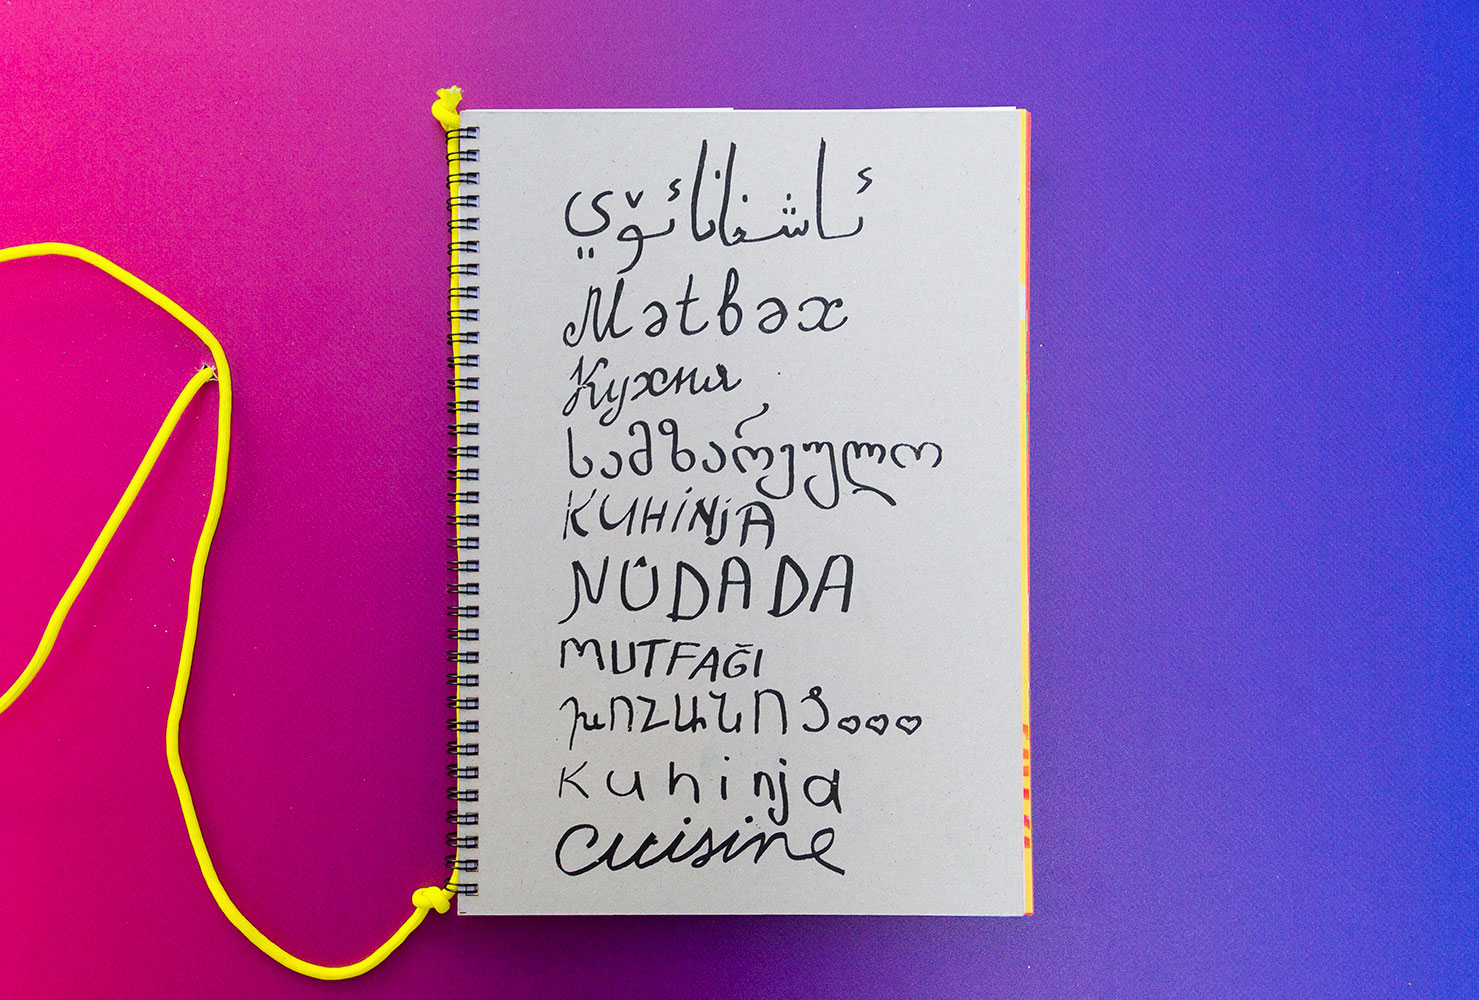 ئاشخانائۆي
Mətbəx
Кухня
სამზარეულო
KUHINJA
MUTFAĞI
խՈՀԱՆՈՑ
Kuhinja
cuisine